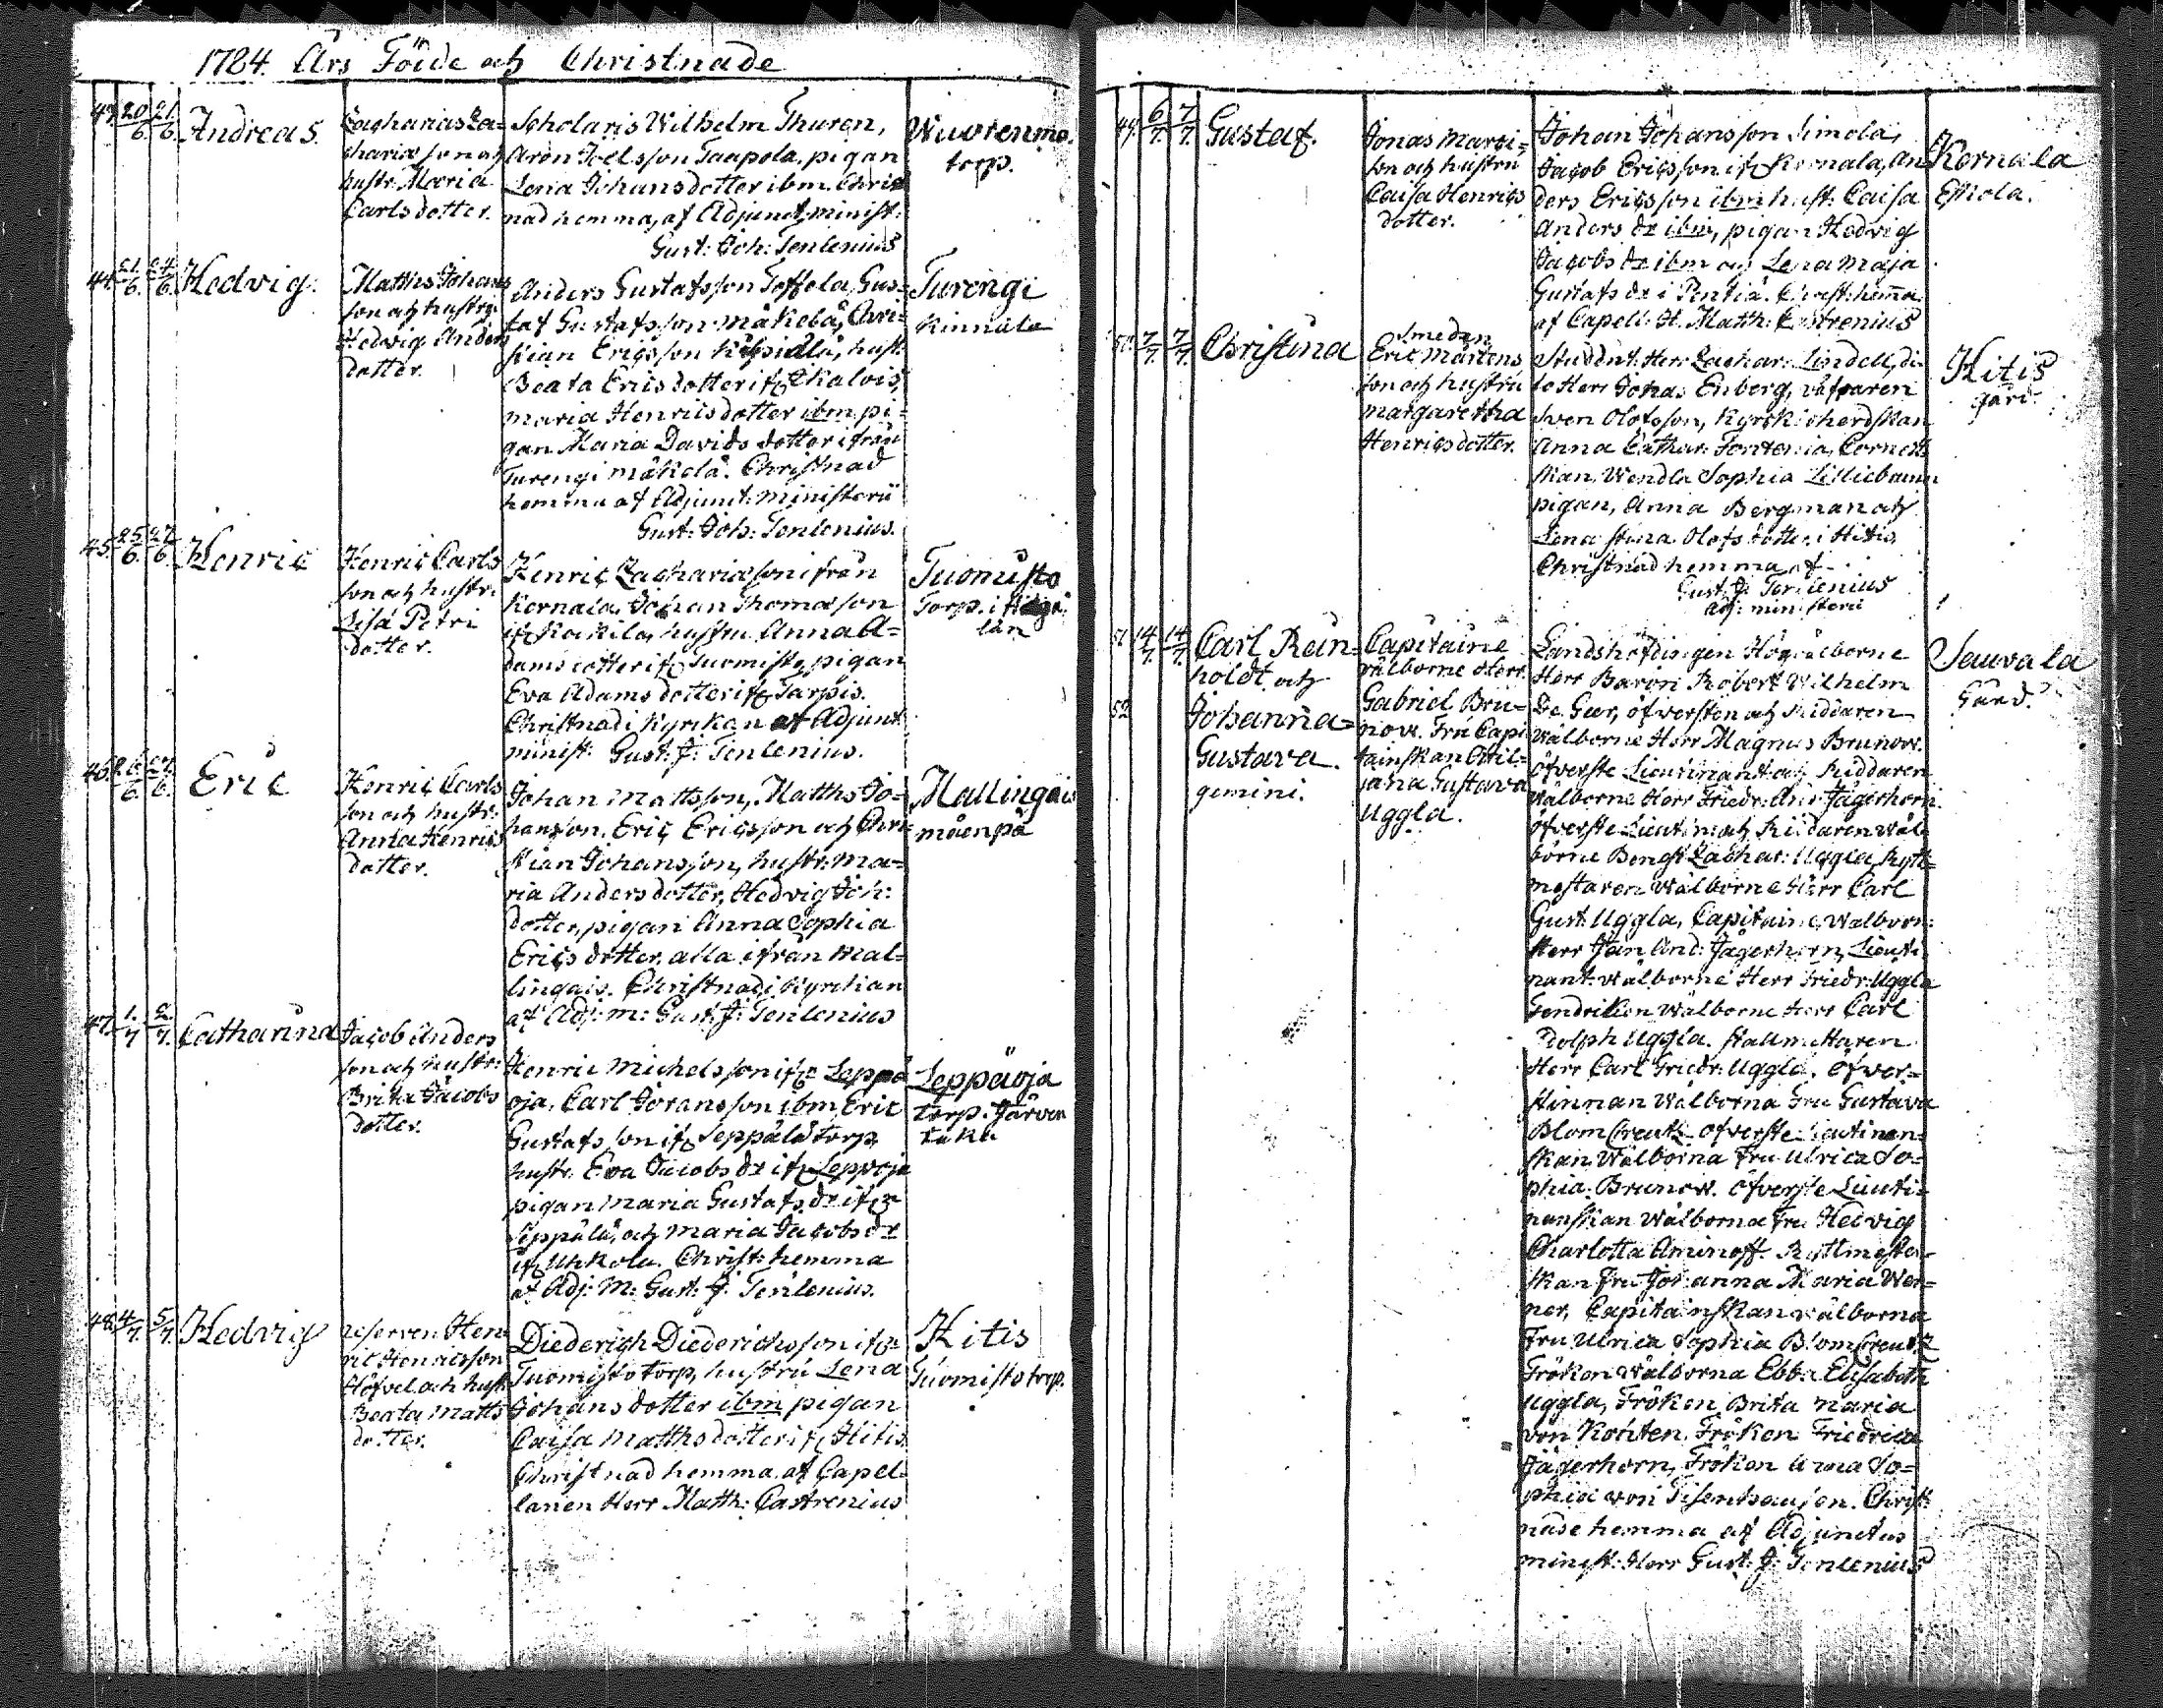 1784. Års Födde och Christnade
43. 20/6. 21/6. Andreas.
Zacharias Za=
chariæ son och
hustr. Maria
Carls dotter.
Scholaris Wilhelm Thuren,
Aron Joelsson Taapola, pigan
Lena Johansdotter ibm. Christ
nad hemma, af Adjunct, minist:
Gust: Joh: Tenlenius
Wuorenma.
torp.
44. 21/6. 24/6. Hedvig.
Matths Johans
son och hustr.
Hedvig Anders
dotter.
Anders Gustafsson Toffola, Gus=
taf Gustafsson Mäkelä, Chri=
stian Ericsson hust:
Beata Erics dotter ifr
Maria Henricsdotter ibm. pi=
gan Maria Davids dotter ifrån
Turengi Mäkelä. Christnad
hemma af Adjunct: Ministerii
Gust: Joh: Tenlenius.
Turengi
Kinnala
45. 25/6. 27/6. Henric
Henric Carls
son och hustr.
Lisa Petri
dotter.
Henric Zachariæ son ifrån
Kernala, Johan Thomæ son
ifr Kaikila, hustru Anna A=
dams dotter ifr Tuomisto, pigan
Eva Adams dotter ifr Tarpis.
Christnad i Kyrckan af Adjunt
minist: Gust: J: Tenlenius.
Tuomisto
Torp. i
län
46. 26/6. 27/6. Eric
Henric Carls
son och hustr:
Anna Henrics
dotter.
Johan Mattsson, Matths Jo=
hansson, Eric Ericsson och Chri
stian Johansson, hustr. Ma=
ria Andersdotter, Hedvig Joh:
dotter, pigan Anna Sophia
Erics dotter, alla ifrån Mal=
lingais. Christnad i Kyrckan
af Adj: m: Gust: J: Tenlenius
Mallingais
måenpä
47. 1/7 2/7. Catharina
Jacob Anders
son och hustr:
Brita Jacobs
dotter.
Henric Michelsson ifr Leppä
oja, Carl Göransson ibm, Eric
Gustafs son ifr Seppälä torp
hustr. Eva Jacobs dr ifr Leppoja
pigan Maria Gustafs dr ifr
Seppälä, och Maria Jacobs dr
ifr Uhkola. Christ: hemma
af Adj: M: Gust: J: Tenlenius.
Leppäoja
torp. Järven
48. 4/7. 5/7. Hedvig
reserven Hen
ric Henricsson
Höfvel och hust
Beata Matts
dotter.
Diederich Diederichsson ifr
Tuomisto torp, hustru Lena
Johans dotter ibm pigan
Caisa Matths dotter ifr Hitis
Christnad hemma af Capel=
lanen Herr Matth: Castrenius
Hitis
Tuomisto torp.
49. 6/7. 7/7. Gustaf.
Jonas Marti=
son och hustru
Caisa Henrics
dotter.
Johan Johansson Simola,
Jacob Ericsson ifr Kernala, An
ders Ericsson ibm hust: Caisa
Anders dr ibm, pigan Hedvig
Jacobs dr ibm och Lena Maja
Gustafs dr i Pentiä. Christ: hemma
af Capell: H. Matth: Castrenius
Kernala
Eskola.
50. 7/7. 7/7. Christina
Smeden
Eric Mårtens
son och hustru
Margaretha
Henrics dotter.
Student: Herr Zachar: Lindell, di
to Herr Johas Enberg, väfvaren
Sven Olofsson, Kyrckoherdskan
Anna Cathar: Cornett
skan, Wendla Sophia Lilliebrunn
pigan, Anna Bergman och
Lena Stina Olofs dotter i Hitis
Christnad hemma af
Gust: J: Tenlenius
Adj: ministerii
Hitis
gård.
51 14/7. 14/7. Carl Rein=
holdt. och
52 Johanna=
Gustava.
gemini.
Capitaine
wälborne Herr
Gabriel Bru=
now. Fru Capi
tainskan Otil=
jana Gustava
Uggla.
Landshöfdingen Högwälborne
Herr Baron Robert Wilhelm
De Geer, öfversten och Riddaren
Wälborne Herr Magnus Brunow.
öfverste Lieutinandt och Riddaren
Wälborne Herr Friedr: And: Jägerhorn
öfverste Lieutin. och Riddaren Wäl
borne Bengt Zachar: Uggla, Rytt=
mestaren Wälborne Herr Carl
Gust: Uggla, Capitaine, Wälborn:
Herr Jan And: Jägerhorn, Lieuti
nant: wälborne Herr Friedr: Uggla
Fendricken Wälborne Herr Carl
Dolph Uggla. Stallmestaren
Herr Carl Friedr: Uggla. Öfver=
stinnan Wälborna Fru Gustava
Blom Creutz. Öfverste Lieutinan=
skan Wälborna Fru Ulrica So=
phia Brunow. Öfverste Lieuti=
nanskan Wälborna Fru Hedvig
Charlotta Aminoff. Ryttmester=
skan Fru Johanna Maria Wer=
ner, Capitainskan wälborna
Fru Ulrica Sophia Blom Creutz
Fröken Wälborna Ebba Elisabeth
Uggla, Fröken Brita Maria
von Konten, Fröken Friedrica
Jägerhorn, Fröken Anna So=
phia von Tisenhausen. Christ
nade hemma af Adjunctus
minist: Herr Gust: J: Tenlenius
Sauvala
Gård.